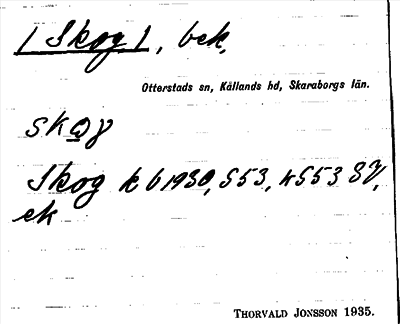 [Skog], bek.
Otterstads sn, Kållands hd, Skaraborgs län.
skQγ
Skog k b 1930, S53, HS53 SV,
ek
THORVALD JONSSON 1935.